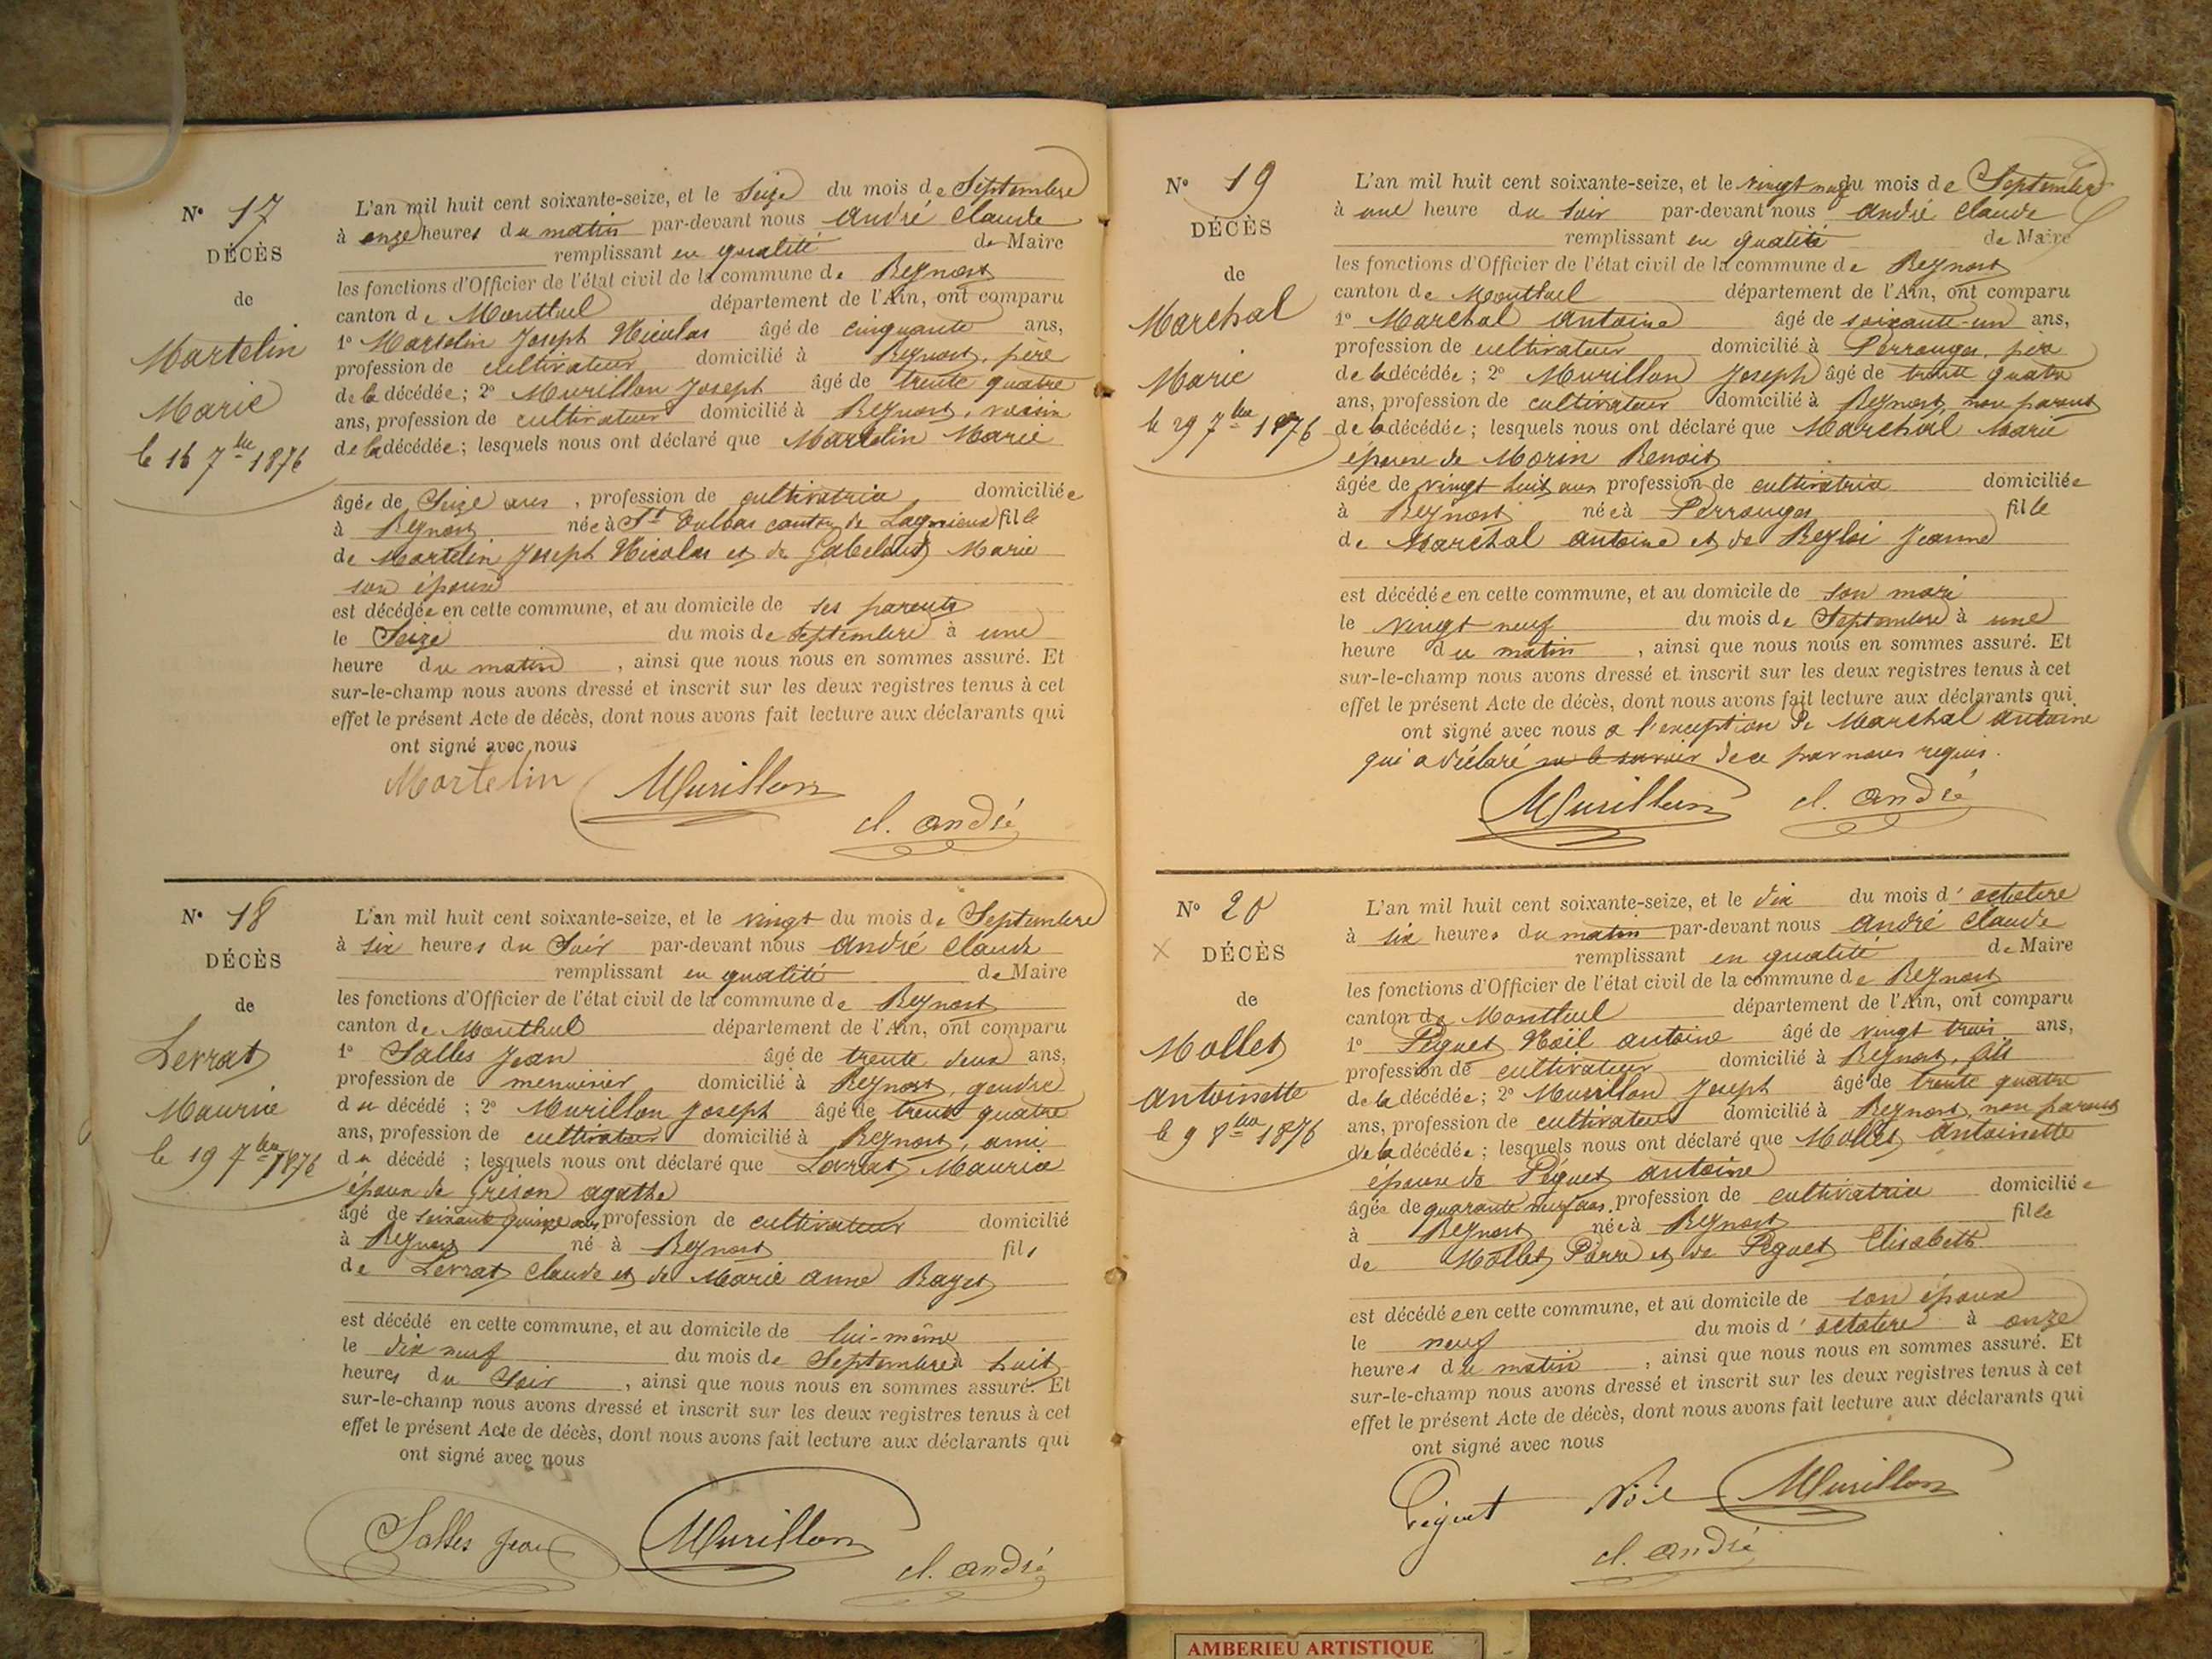 N° 17
DÉCÈS
de
Martelin
Marie
le 16 7bre 1876
L'an mil huit cent soixante-seize, et le Seize du mois de Septembre
à onze heures du matin par-devant nous André Claude
remplissant en qualité de Maire
les fonctions d'Officier de l'état civil de la commune de Beynost
canton de Montluel département de l'Ain, ont comparu
1° Martelin Joseph Nicolas âgé de cinquante ans,
profession de cultivateur domicilié à Beynost, père
de la décédée; 2° Murillon Joseph âgé de trente quatre
ans, profession de cultivateur domicilié à Beynost, voisin
de la décédée; lesquels nous ont déclaré que Martelin Marie
âgée de Seize ans, profession de cultivatrice domiciliée
à Beynost née à St Vulbas canton de Lagnieux fille
de Martelin Joseph Nicolas et de Marie
son épouse
est décédée en cette commune, et au domicile de ses parents
le Seize du mois de Septembre à une
heure du matin, ainsi que nous nous en sommes assuré. Et
sur-le-champ nous avons dressé et inscrit sur les deux registres tenus à cet
effet le présent Acte de décès, dont nous avons fait lecture aux déclarants qui
ont signé avec nous
Martelin Murillon
cl. André
N° 18
DÉCÈS
de
Levrat
Maurice
le 19 7bre 1876
L'an mil huit cent soixante-seize, et le vingt du mois de Septembre
à six heures du Soir par-devant nous André Claude
remplissant en qualité de Maire
les fonctions d'Officier de l'état civil de la commune de Beynost
canton de Montluel département de l'Ain, ont comparu
1° Salles Jean âgé de trente deux ans,
profession de menuisier domicilié à Beynost, gendre
du décédé ; 2° Murillon Joseph âgé de trente quatre
ans, profession de cultivateur domicilié à Beynost, ami
du décédé ; lesquels nous ont déclaré que Levrat Maurice
époux de Grison agathe
âgé de soixante quinze ans profession de cultivateur domicilié
à Beynost né à Beynost fils
de Levrat Claude et de Marie anne Baget
est décédé en cette commune, et au domicile de lui-même
le dix neuf du mois de Septembre à huit
heures du Soir, ainsi que nous nous en sommes assuré. Et
sur-le-champ nous avons dressé et inscrit sur les deux registres tenus à cet
effet le présent Acte de décès, dont nous avons fait lecture aux déclarants qui
ont signé avec nous
Salles Jean Murillon
cl. André
N° 19
DÉCÈS
de
Marchal
Marie
le 29 7bre 1876
L'an mil huit cent soixante-seize, et le vingt neuf du mois de Septembre
à une heure du soir par-devant nous André Claude
remplissant en qualité de Maire
les fonctions d'Officier de l'état civil de la commune de Beynost
canton de Montluel département de l'Ain, ont comparu
1° Marchal Antoine âgé de soixante-un ans,
profession de cultivateur domicilié à Perrouges, père
de la décédée ; 2° Murillon Joseph âgé de trente quatre
ans, profession de cultivateur domicilié à Beynost, non parent
de la décédée; lesquels nous ont déclaré que Marchal Marie
épouse de Morin Benoit
âgée de vingt huit ans profession de cultivatrice domiciliée
à Beynost née à Perrouges fille
de Marchal antoine et de Jeanne
est décédée en cette commune, et au domicile de son mari
le vingt neuf du mois de Septembre à une
heure du matin, ainsi que nous nous en sommes assuré. Et
sur-le-champ nous avons dressé et inscrit sur les deux registres tenus à cet
effet le présent Acte de décès, dont nous avons fait lecture aux déclarants qui
ont signé avec nous a l'exception de Marchal antoine
qui a déclaré ne le savoir de ce par nous requis.
Murillon cl. André
N° 20
DÉCÈS
de
Mollet
Antoinette
le 9 8bre 1876
L'an mil huit cent soixante-seize, et le dix du mois d'octobre
à six heures du matin par-devant nous André Claude
remplissant en qualité de Maire
les fonctions d'Officier de l'état civil de la commune de Beynost
canton de Montluel département de l'Ain, ont comparu
1° Péguet Noël antoine âgé de vingt trois ans,
profession de cultivateur domicilié à Beynost, fils
de la décédée; 2° Murillon Joseph âgé de trente quatre
ans, profession de cultivateur domicilié à Beynost, non parent
de la décédée; lesquels nous ont déclaré que Mollet Antoinette
épouse de Péguet antoine
âgée de quarante neuf ans, profession de cultivatrice domiciliée
à Beynost née à Beynost fille
de Mollet Pierre et de Péguet Elisabeth
est décédée en cette commune, et au domicile de son époux
le neuf du mois d'octobre à onze
heures du matin, ainsi que nous nous en sommes assuré. Et
sur-le-champ nous avons dressé et inscrit sur les deux registres tenus à cet
effet le présent Acte de décès, dont nous avons fait lecture aux déclarants qui
ont signé avec nous
Péguet Noël Murillon
cl. André
AMBERIEU ARTISTIQUE